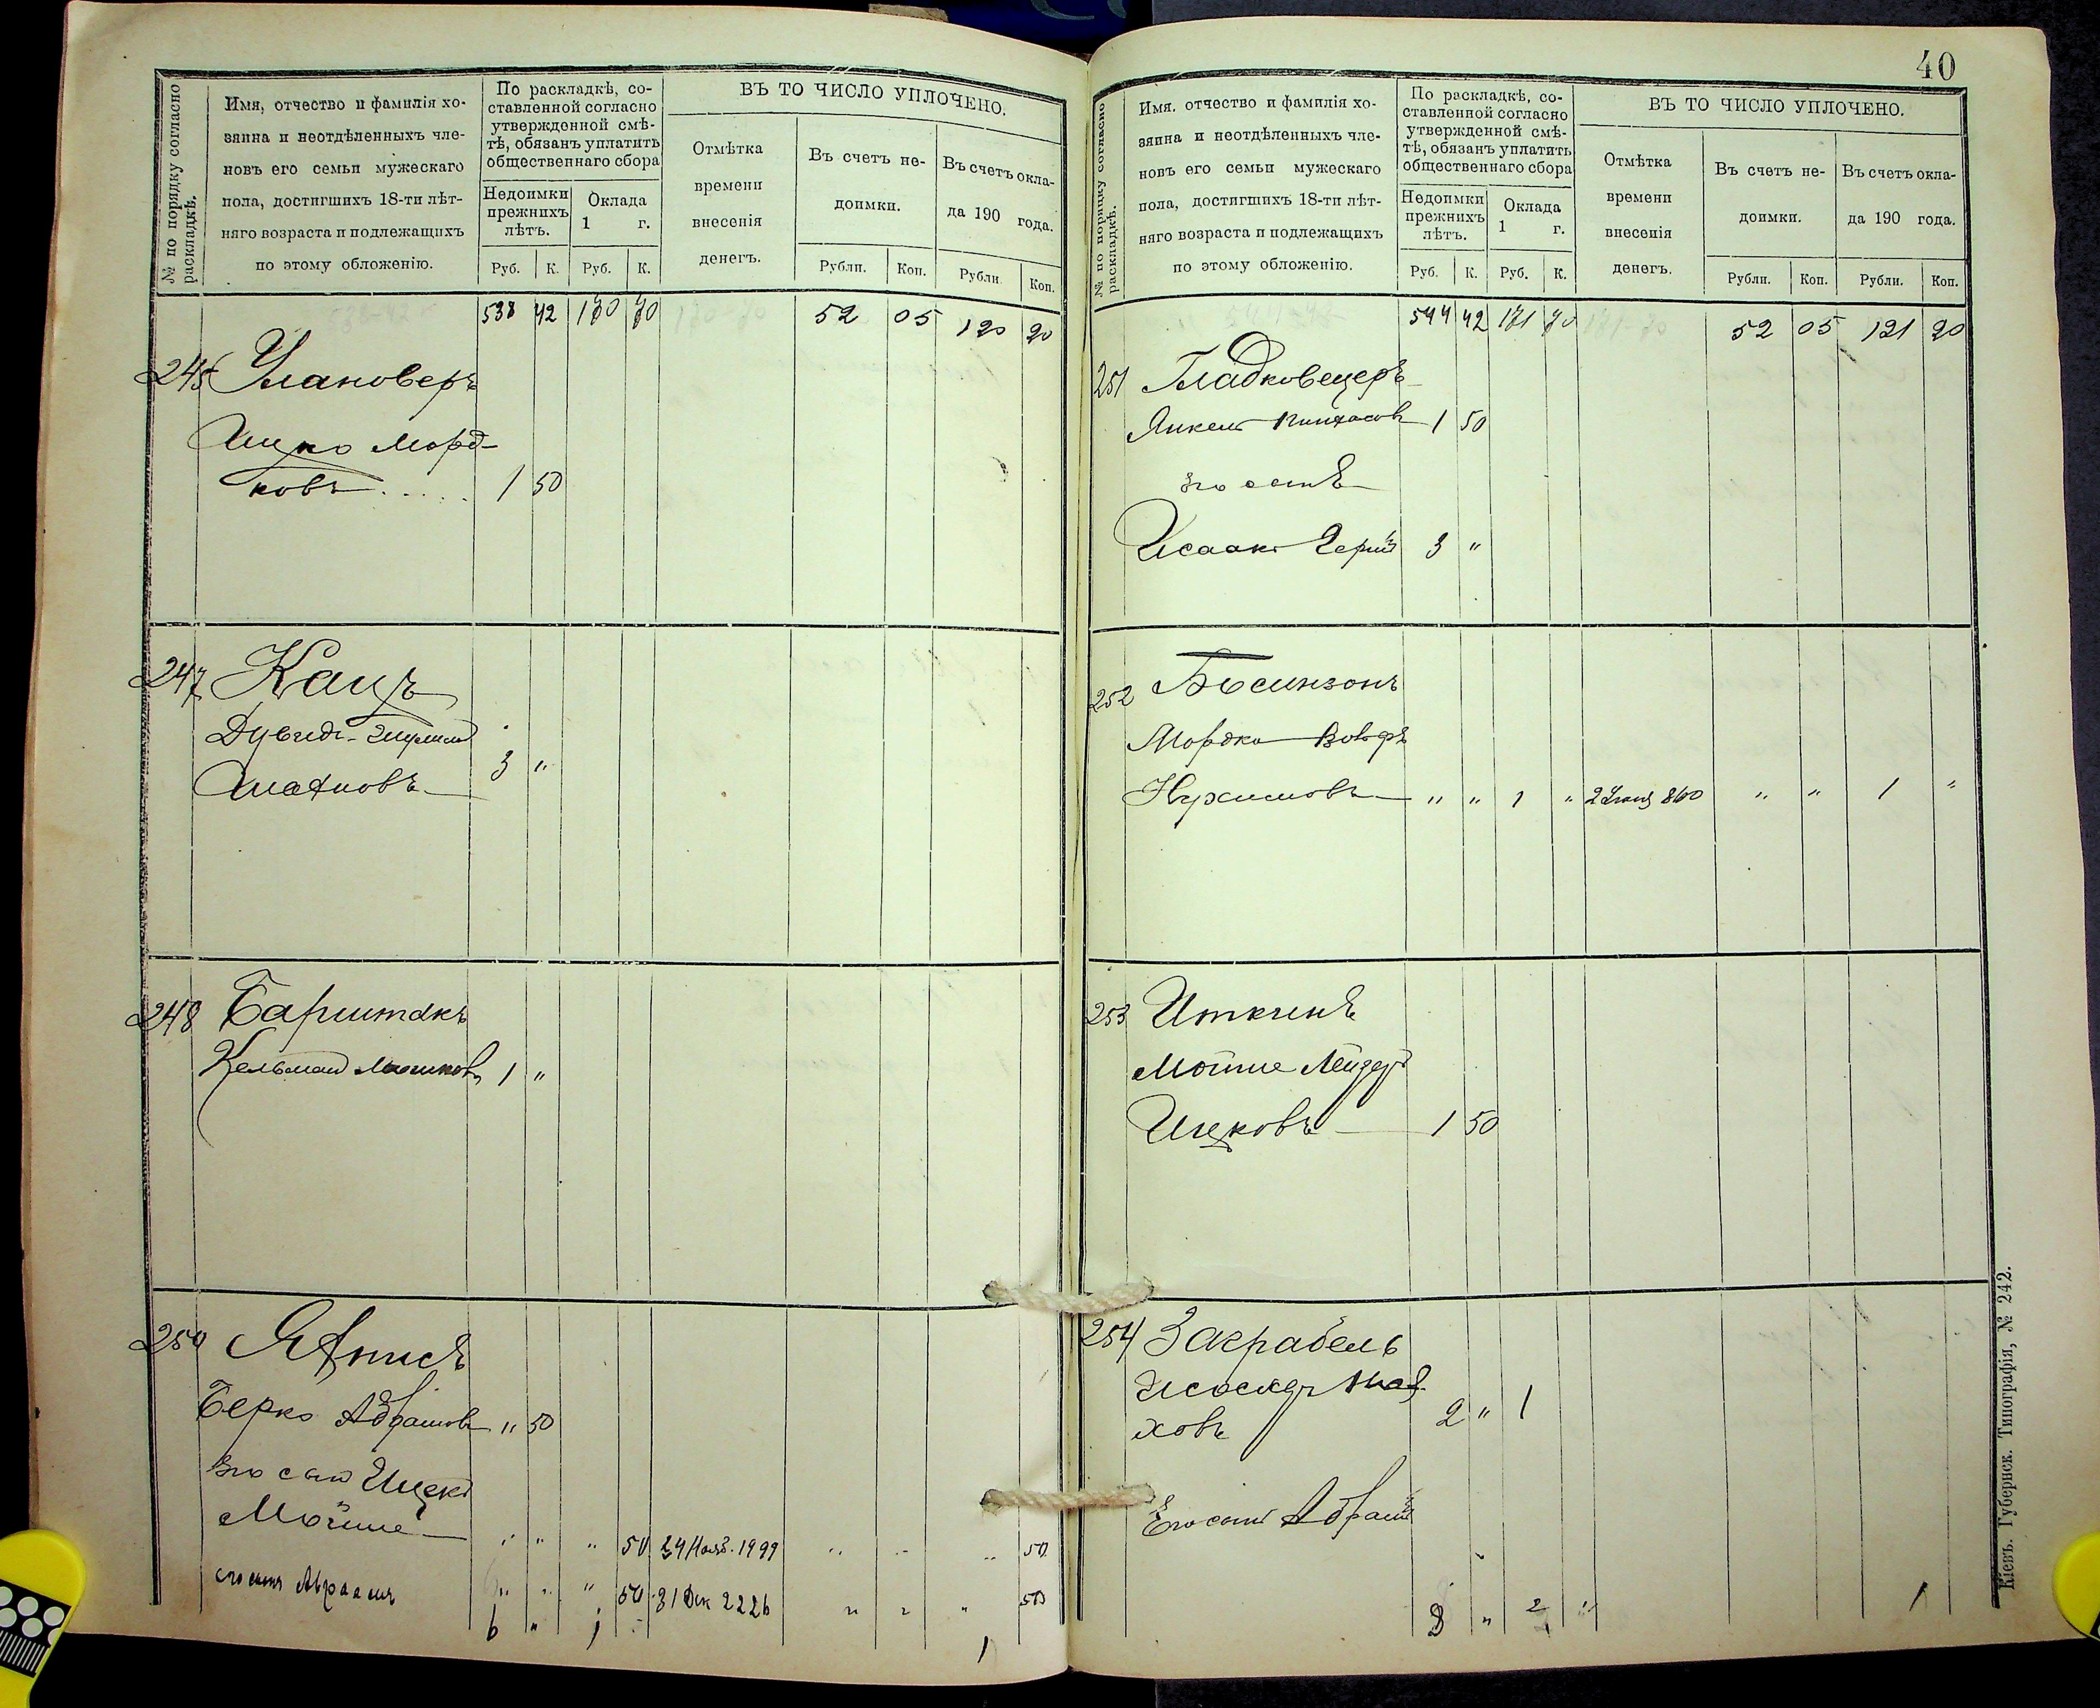 № по порядку согласно раскладкѣ.
Имя, отчество и фамилія хо-
зяина и неотдѣленныхъ чле-
новъ его семьи мужескаго
пола, достигшихъ 18-ти лѣт-
няго возраста и подлежащихъ
по этому обложенію.
По раскладкѣ, со-
ставленной согласно
утвержденной смѣ-
тѣ, обязанъ уплатить
общественнаго сбора
Недоимки прежнихъ лѣтъ.
Оклада 1 г.
Руб. К. Руб. К.
ВЪ ТО ЧИСЛО УПЛОЧЕНО.
Отмѣтка
времени
внесенія
денегъ.
Въ счетъ не-
доимки.
Рубли. Коп.
Въ счетъ окла-
да 190 года.
Рубли Коп.
538 42 170 70 52 05 120 20
Улановеръ
Ицко Морд-
ковъ..... 1 50
247 Кацъ
Дувидъ-
3 "
248 Барштакъ
Кельман Мошковъ 1 "
250
Берко Абрамовъ " 50
его сын Ицек
Мойше " " " 50 24 Нояб. 1999 " " " 50
его сынъ Авраамъ " " " 50 31 Дек 2226 " " " 50
6 " 1 1
40
№ по порядку согласно раскладкѣ.
Имя, отчество и фамилія хо-
зяина и неотдѣленныхъ чле-
новъ его семьи мужескаго
пола, достигшихъ 18-ти лѣт-
няго возраста и подлежащихъ
по этому обложенію.
По раскладкѣ, со-
ставленной согласно
утвержденной смѣ-
тѣ, обязанъ уплатить
общественнаго сбора
Недоимки прежнихъ лѣтъ.
Оклада 1 г.
Руб. К. Руб. К.
ВЪ ТО ЧИСЛО УПЛОЧЕНО.
Отмѣтка
времени
внесенія
денегъ.
Въ счетъ не-
доимки.
Рубли. Коп.
Въ счетъ окла-
да 190 года.
Рубли. Коп.
544 42 171 70 52 05 121 20
251 Гладковецеръ
Янкель Пинхасовъ 1 50
его сынъ
Исаакъ Герш 3 "
252
Мордко Вольфъ
Нухимовъ " " 1 " 2 860 " " 1 "
253 Иткинъ
Мойше Лейзер
Ицковъ 1 50
254 Заграбель
ховъ 2 " 1
Его сынъ Абрам
3 " 2 " 1
Кіевъ. Губернск. Типографія, № 242.